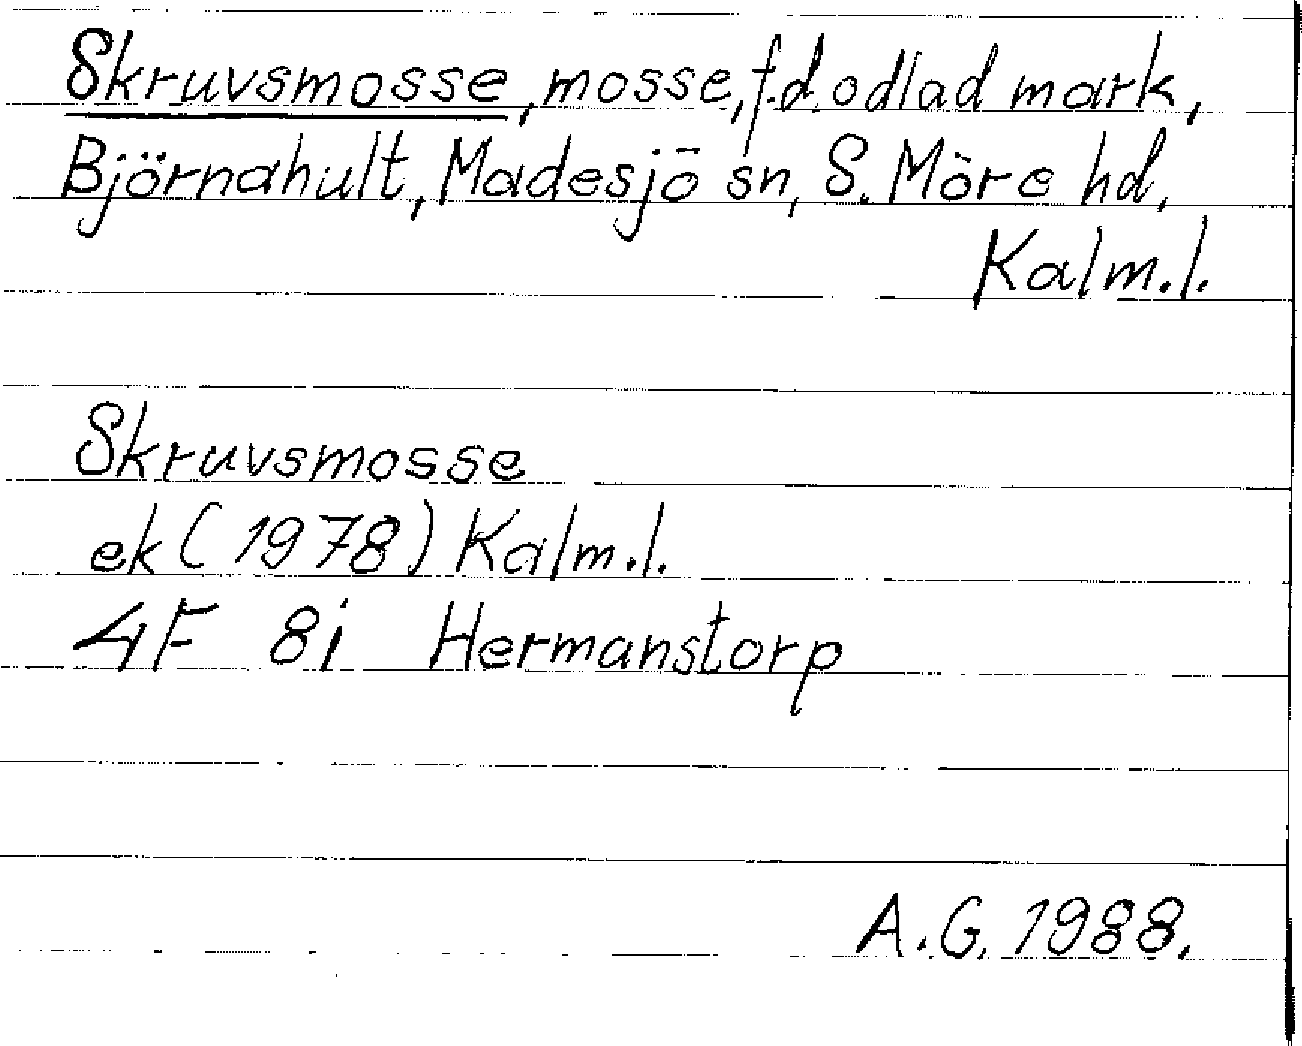 Skruvsmosse, mosse, f.d. odlad mark,
Björnahult, Madesjö sn, S. Möre hd,
Kalm.l.
Skruvsmosse
ek (1978) Kalm.l.
4F 8i Hermanstorp
A.G. 1988.